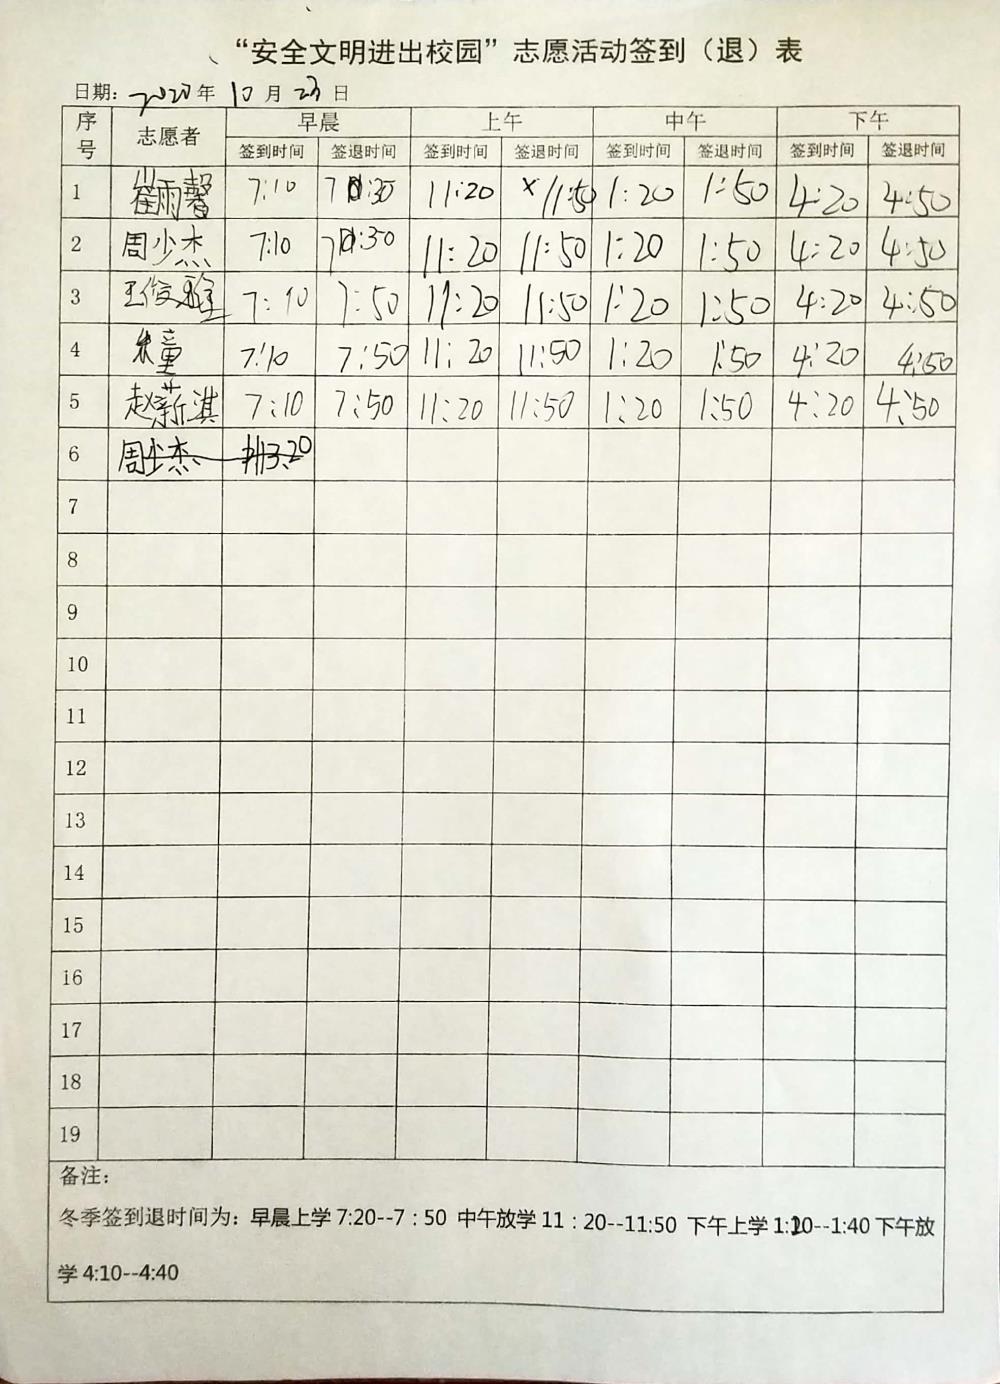 “安全文明进出校园”志愿活动签到（退）表
日期：2020年10月23日
序号 志愿者 早晨 上午 中午 下午
签到时间 签退时间 签到时间 签退时间 签到时间 签退时间 签到时间 签退时间
1 崔雨馨 7:10 7:30 11:20 11:50 1:20 1:50 4:20 4:50
2 周少杰 7:10 7:30 11:20 11:50 1:20 1:50 4:20 4:50
3 王俊雅 7:10 7:50 11:20 11:50 1:20 1:50 4:20 4:50
4 朱童 7:10 7:50 11:20 11:50 1:20 1:50 4:20 4:50
5 赵薪淇 7:10 7:50 11:20 11:50 1:20 1:50 4:20 4:50
6 周少杰
7
8
9
10
11
12
13
14
15
16
17
18
19
备注：
冬季签到退时间为：早晨上学 7:20--7：50 中午放学 11：20--11:50 下午上学 1:10--1:40 下午放
学 4:10--4:40